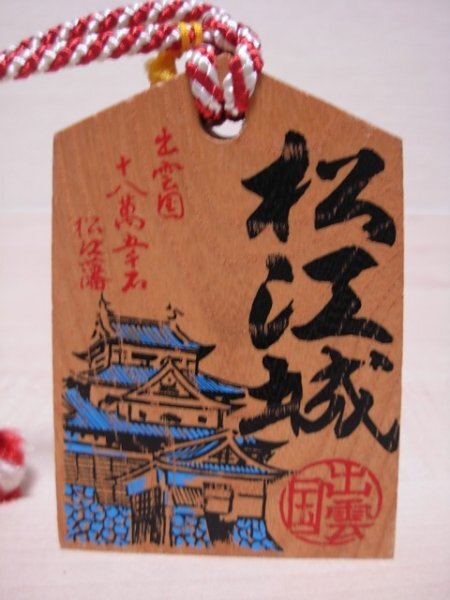 松江城
出雲国
十八萬五千石
松江藩
出雲
国